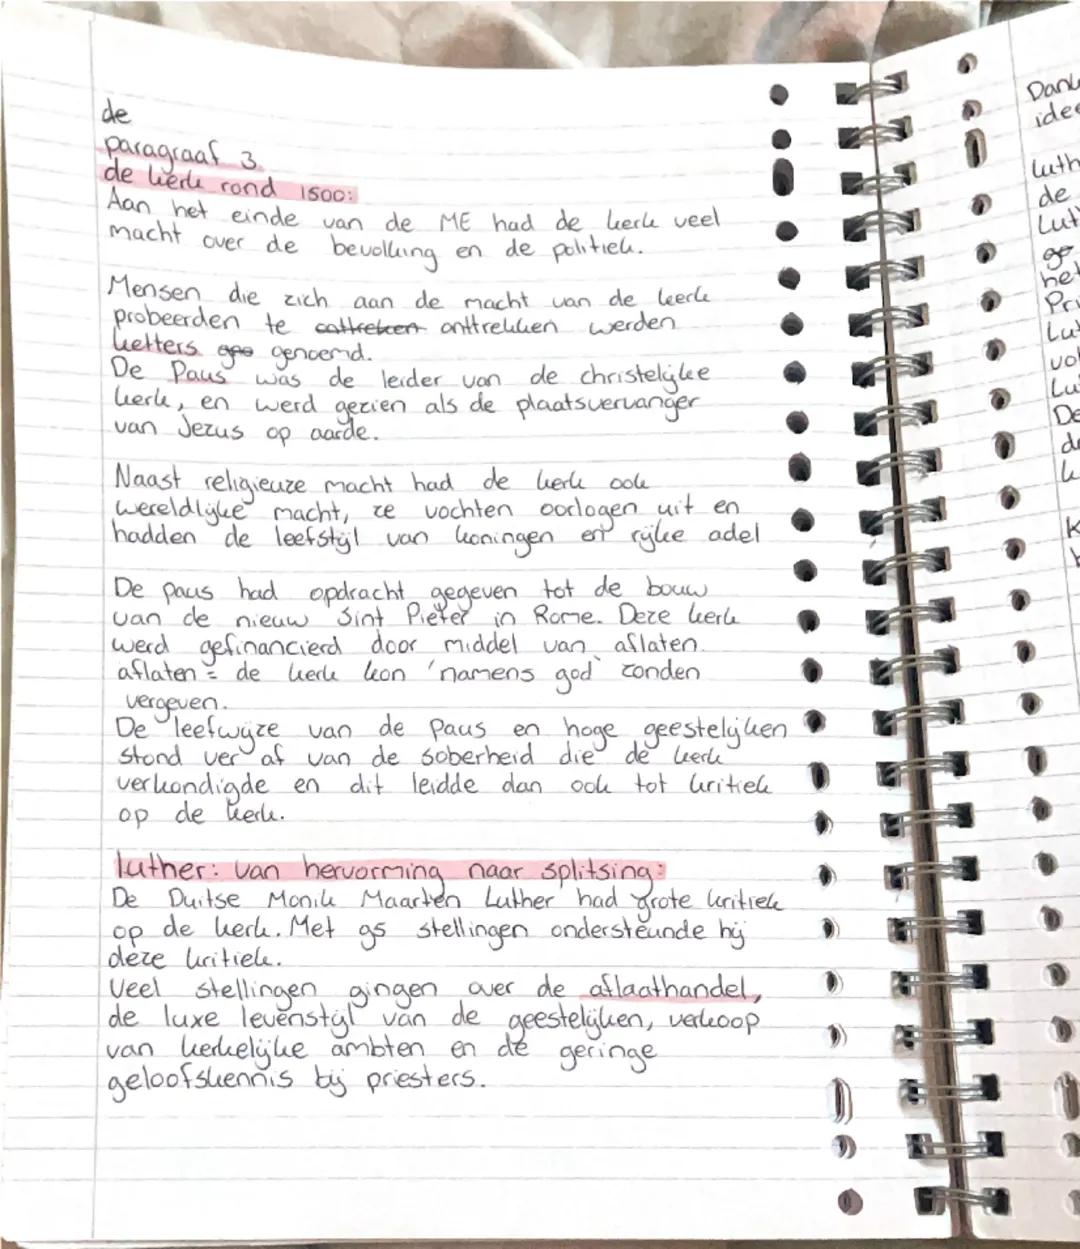 de
paragraaf 3
de kerk rond 1500:
Aan het einde van de ME had de kerk veel
macht over de bevolking en de politiek.
Mensen die zich aan de macht van de kerk
probeerden te onttrekken werden
ketters genoemd.
De Paus was de leider van de christelijke
kerk, en werd gezien als de plaatsvervanger
van Jezus op aarde.
Naast religieuze macht had de kerk ook
wereldlijke macht, ze vochten oorlogen uit en
hadden de leefstijl van koningen en rijke adel
De paus had opdracht gegeven tot de bouw
van de nieuw Sint Pieter in Rome. Deze kerk
werd gefinancierd door middel van aflaten.
aflaten = de kerk kon 'namens god' zonden
vergeven.
De leefwijze van de Paus en hoge geestelijken
stond ver af van de soberheid die de kerk
verkondigde en dit leidde dan ook tot kritiek
op de kerk.
Luther: van hervorming naar splitsing:
De Duitse Monik Maarten Luther had grote kritiek
op de kerk. Met 95 stellingen ondersteunde hij
deze kritiek.
Veel stellingen gingen over de aflaathandel,
de luxe levenstijl van de geestelijken, verkoop
van kerkelijke ambten en de geringe
geloofskennis bij priesters.
idee
Luth
de
Lut
het
Pri
Lut
vol
Lu
De